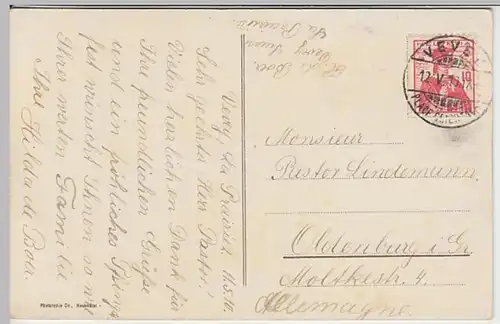 Vevey, La Prairie, 11.5.10.
Sehr geehrter Herr Pastor!
Vielen herzlichen Dank für
Ihre freundlichen Grüße
und ein fröhliches Pfingst-
fest wünscht Ihnen so wie
Ihrer werten Familie
Ihre Hilda de Boer.
H. de Boer
La Prairie
VEVEY
12.V.10
10
Monsieur
Pastor Lindemann
Oldenburg i/Gr.
Moltkestr. 4.
Allemagne.
Phototypie Co., Neuchâtel